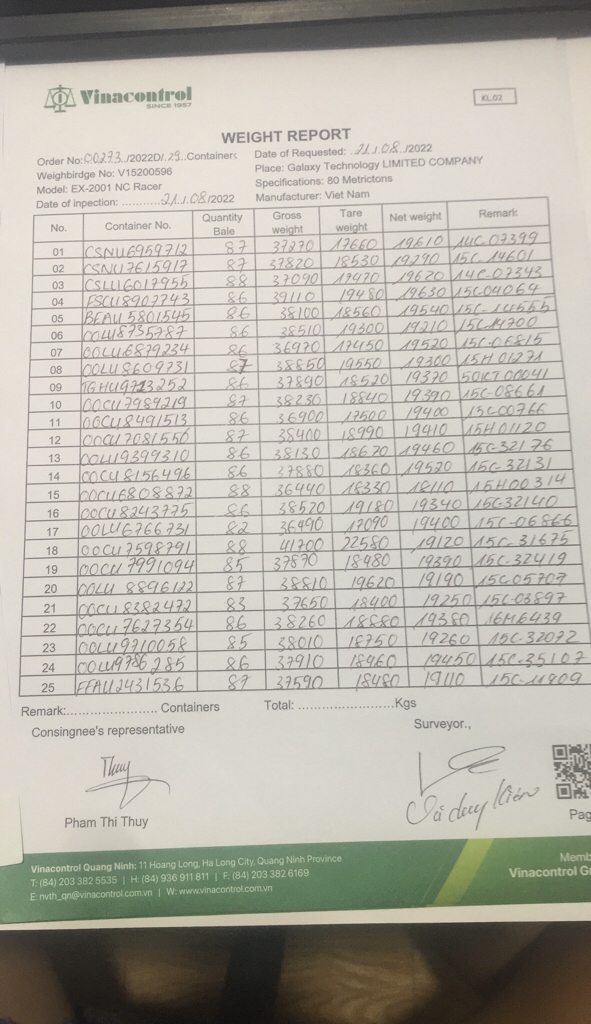 Vinacontrol
SINCE 1957
KL.02
WEIGHT REPORT
Order No: 00273 /2022D/. 29 ..Containers Date of Requested: .21./.08./2022
Weighbirdge No: V15200596 Place: Galaxy Technology LIMITED COMPANY
Model: EX-2001 NC Racer Specifications: 80 Metrictons
Date of inpection: ............21./.08/2022 Manufacturer: Viet Nam
No. Container No. Quantity Bale Gross weight Tare weight Net weight Remark
01 CSNU6959712 87 37270 17660 19610 14C-07399
02 CSNU7615917 87 37820 18530 19290 15C-14601
03 CSLU6017955 88 37090 17470 19620 14C-07343
04 FSCU8902743 86 39110 19480 19630 15C04064
05 BEAU5801545 86 38100 18560 19540 15C-14555
06 OOLU8735787 86 38510 19300 19210 15C-14700
07 OOLU6879234 86 36970 17450 19520 15C-06815
08 OOLU8609731 87 38850 19550 19300 15H01271
09 TGHU9713252 86 37890 18520 19370 50KT00041
10 OOCU7989219 87 38230 18840 19390 15C-08661
11 OOCU8491513 86 36900 17500 19400 15C00766
12 OOCU7081550 87 38400 18990 19410 15H01120
13 OOLU9399310 86 38130 18670 19460 15C-32176
14 OOCU8156496 86 37880 18360 19520 15C-32131
15 OOCU6808872 88 36440 18330 18110 15H00314
16 OOCU8243775 86 38520 19180 19340 15C-32140
17 OOLU6766731 82 36490 17090 19400 15C-06866
18 OOCU7598791 88 41700 22580 19120 15C-31675
19 OOCU7991094 85 37870 18480 19390 15C-32419
20 OOLU8896122 87 38810 19620 19190 15C-05707
21 OOCU8382472 83 37650 18400 19250 15C-03897
22 OOCU7627354 86 38260 18880 19380 16M6439
23 OOLU9710058 85 38010 18750 19260 15C-32072
24 OOLU9786285 86 37910 18460 19450 15C-35107
25 FFAU2431536 87 37590 18480 19110 15C-11909
Remark:........................ Containers Total: .........................Kgs
Consingnee's representative Surveyor.,
Thuy
Pham Thi Thuy
Pag
Vinacontrol Quang Ninh: 11 Hoang Long, Ha Long City, Quang Ninh Province
T: (84) 203 382 5535 | H: (84) 936 911 811 | F: (84) 203 382 6169
E: nvth_qn@vinacontrol.com.vn | W: www.vinacontrol.com.vn
Memb
Vinacontrol G